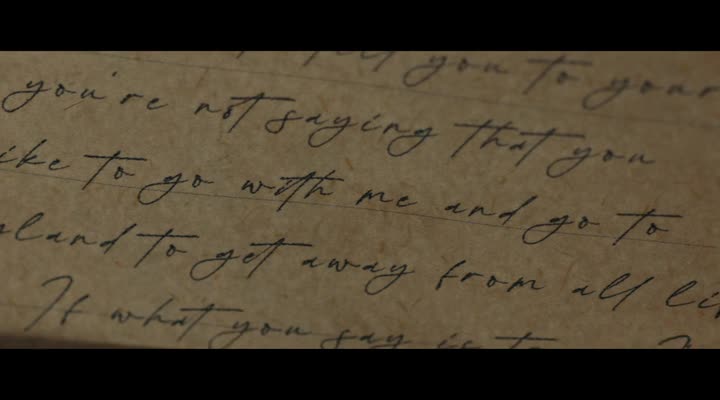 you to your
you're not saying that you
ike to go with me and go to
land to get away from all li
If what you say is t